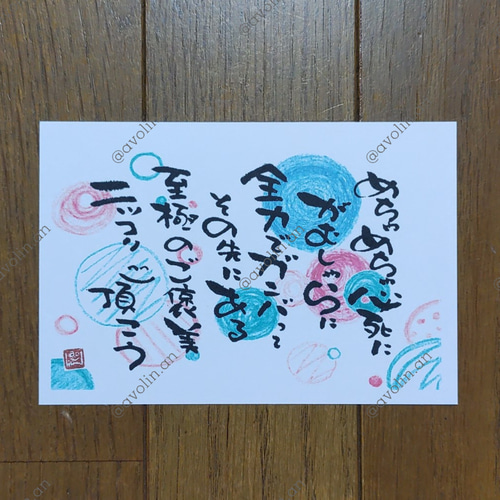 めちゃめちゃ必死に
がむしゃらに
全力でガンバって
その先にある
至極のご褒美
ニッコリ頂こう
@avolin.an